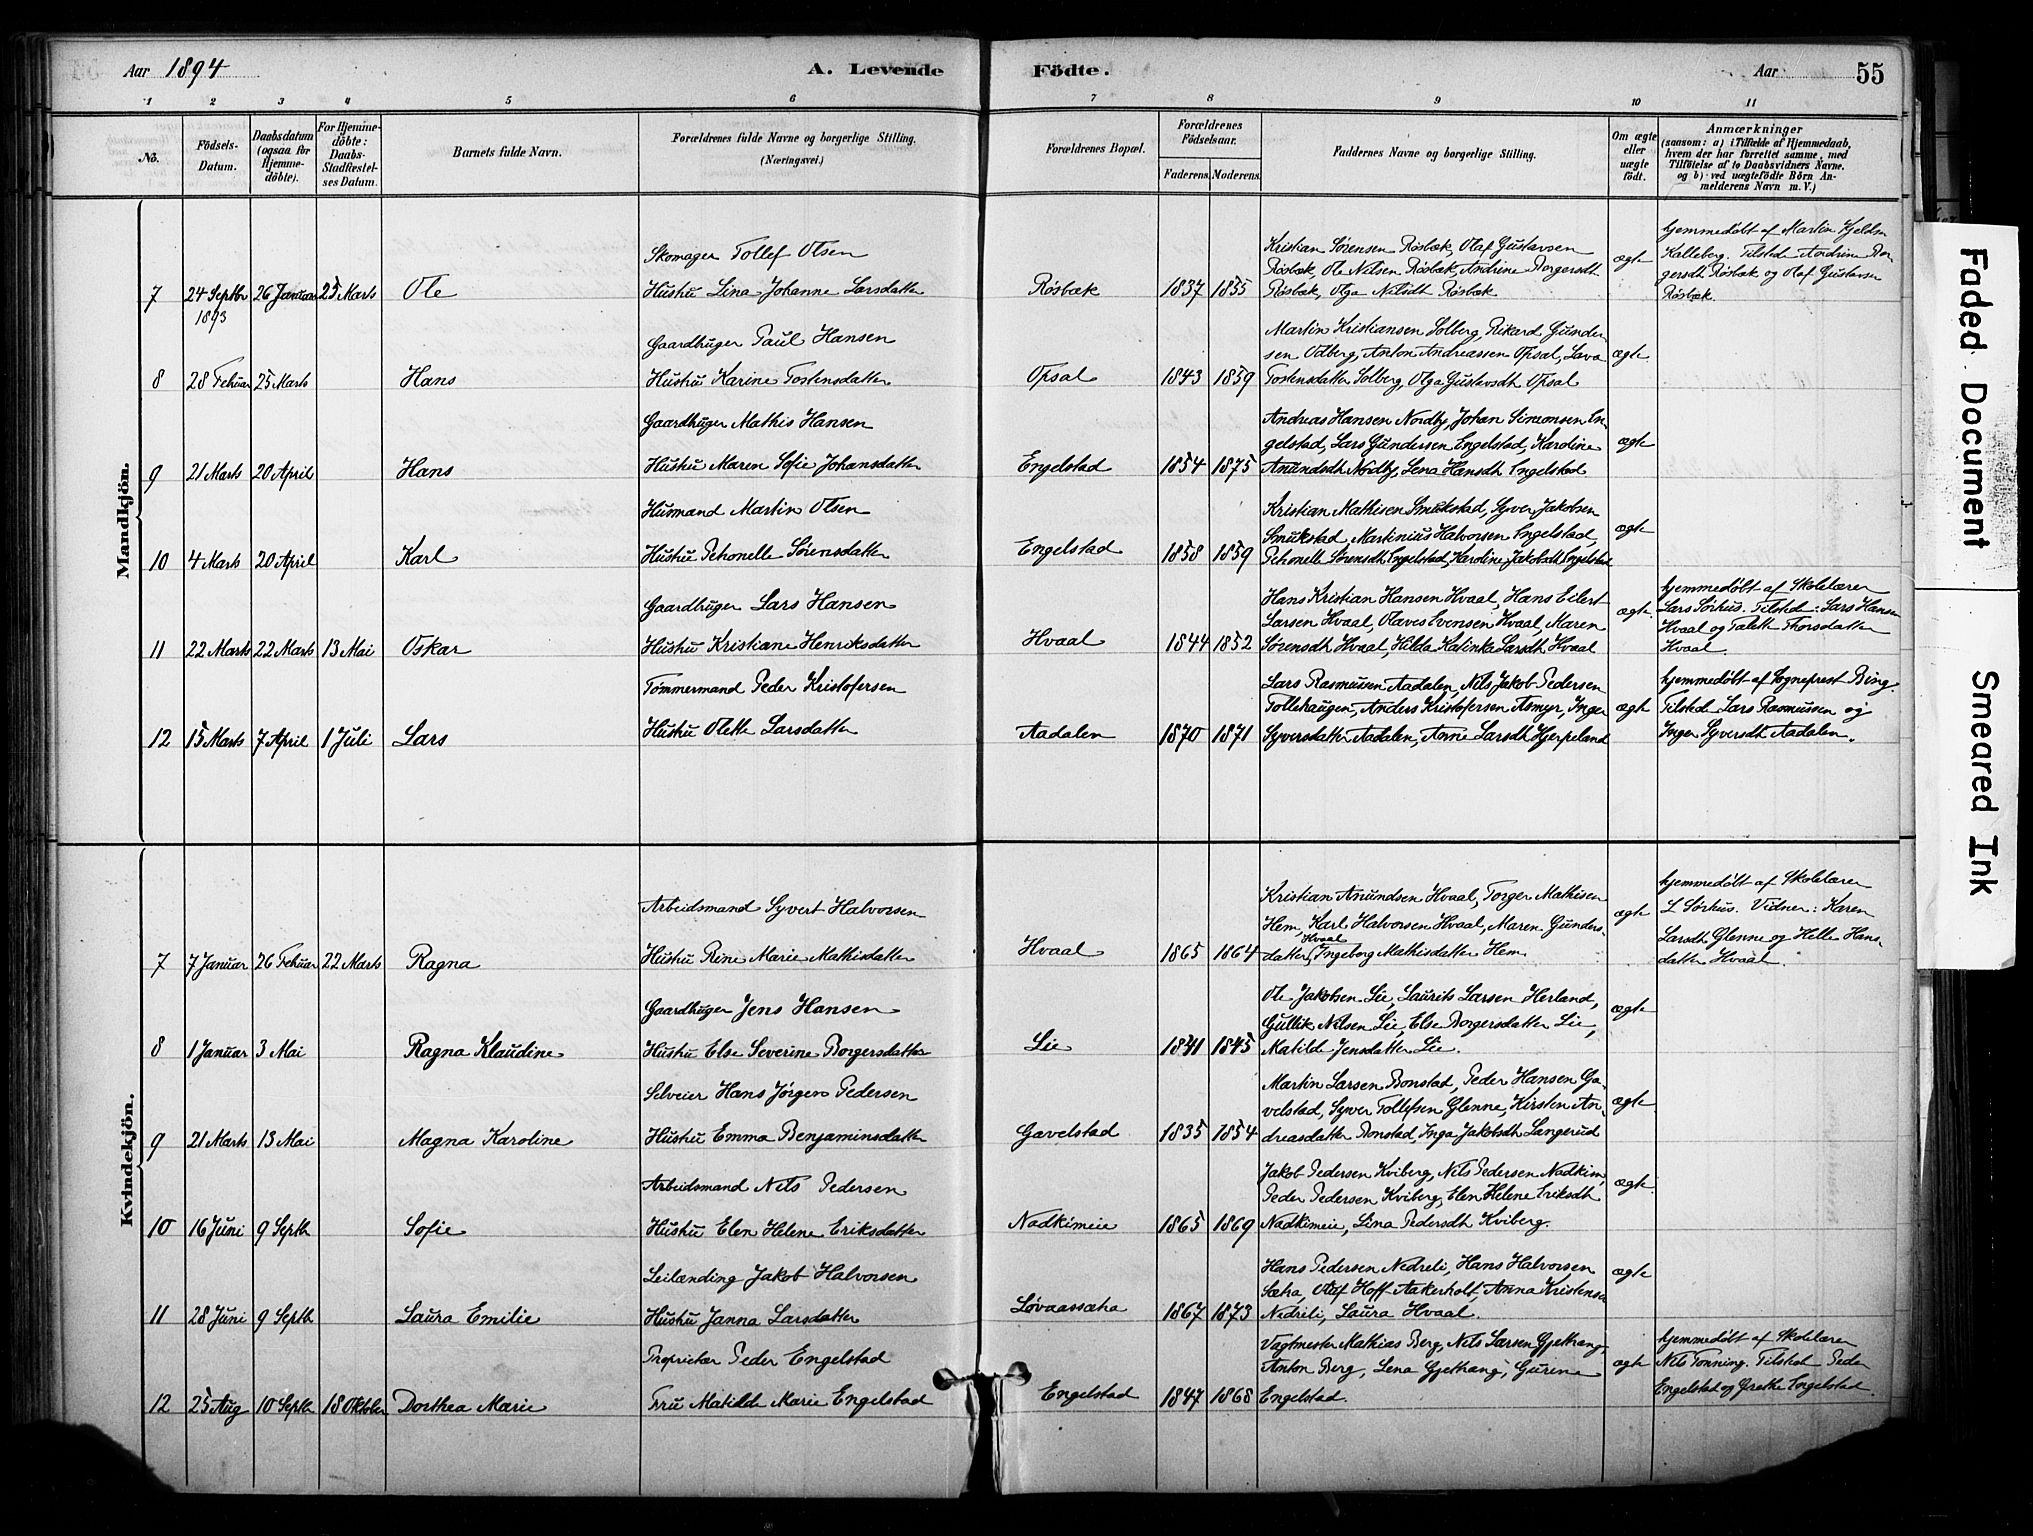 Aar 1894 A. Levende Födte. Aar 55
1 2 3 4 5 6 7 8 9 10 11
No.
Födsels-
Datum.
Daabsdatum
(ogsaa for
Hjemme-
döbte).
For Hjemme-
döbte:
Daabs-
Stadfæstel-
ses Datum.
Barnets fulde Navn.
Forældrenes fulde Navne og borgerlige Stilling.
(Næringsvei.)
Forældrenes Bopæl.
Forældrenes
Födselsaar.
Faderens. Moderens.
Faddernes Navne og borgerlige Stilling.
Om ægte
eller
uægte
født.
Anmærkninger
(saasom: a) i Tilfælde af Hjemmedaab,
hvem der har forrettet samme, med
Tilföielse af to Daabsvidners Navne.
og b) ved uægtefödte Börn An-
melderens Navn m. V.)
Mandkjön.
7 24 Septbr 1893 26 Januar 25 Marts Ole
Skomager Tollef Olsen
Hustru Lina Johanne Larsdatter
Røsbæk 1837 1855
Kristian Sørensen Røsbæk, Olaf Gustavsen
Røsbæk, Ole Nilsen Røsbæk, Andrine Borgersdtr
Røsbæk, Olga Nilsdtr Røsbæk
ægte
hjemmedøbt af Martin Kjeldsen
Kalleberg. Tilsted Andrine Bor-
gersdtr Røsbæk og Olaf Gustavsen
Røsbæk.
8 28 Febuar 25 Marts Hans
Gaardbruger Paul Hansen
Hustru Karine Tostensdatter
Opsal 1843 1859
Martin Kristiansen Solberg, Rikard Gunder-
sen Odberg, Anton Andreassen Opsal, Lava
Tostensdatter Solberg, Olga Gustavsdtr Opsal
ægte
9 21 Marts 20 April Hans
Gaardbruger Mathis Hansen
Hustru Maren Sofie Johansdatter
Engelstad 1854 1875
Andreas Hansen Nordby, Johan Simonsen En-
gelstad, Lars Gundersen Engelstad, Karoline
Anundsdtr Nordby, Lena Hansdtr Engelstad
ægte
10 4 Marts 20 April Karl
Husmand Martin Olsen
Hustru Petronelle Sørensdatter
Engelstad 1858 1859
Kristian Mathisen Smukstad, Syver Jakobsen
Smukstad, Martinius Halvorsen Engelstad,
Petronelle Sørensdtr Engelstad, Karoline Jakobsdtr Engelstad
ægte
11 22 Marts 22 Marts 13 Mai Oskar
Gaardbruger Lars Hansen
Hustru Kristiane Henriksdatter
Hvaal 1844 1852
Hans Kristian Hansen Hvaal, Hans Eilert
Larsen Hvaal, Olaves Evensen Hvaal, Maren
Sørensdtr Hvaal, Hilda Katinka Larsdtr Hvaal
ægte
hjemmedøbt af Skolelærer
Lars Sørhus. Tilsted: Lars Hansen
Hvaal og Talette Thorsdatter
Hvaal.
12 15 Marts 7 April 1 Juli Lars
Tømmermand Peder Kristofersen
Hustru Olette Larsdatter
Aadalen 1870 1871
Lars Rasmussen Aadalen, Nils Jakob Pedersen
Tollehaugen, Anders Kristofersen Asmyr, Inger
Syversdatter Aadalen, Anne Larsdtr Hjerpeland
ægte
hjemmedøbt af Sogneprest Bing.
Tilsted Lars Rasmussen og
Inger Syversdtr Aadalen.
Kvindekjön.
7 7 Januar 26 Febuar 22 Marts Ragna
Arbeidsmand Syvert Halvorsen
Hustru Rine Marie Mathisdatter
Hvaal 1865 1864
Kristian Anundsen Hvaal, Torger Mathisen
Hem, Karl Halvorsen Hvaal, Maren Gunders-
datter Hvaal, Ingeborg Mathisdatter Hem
ægte
hjemmedøbt af Skolelærer
L Sørhus. Vidner: Karen
Larsdtr Glenne og Helle Hans-
datter Hvaal.
8 1 Januar 3 Mai Ragna Klaudine
Gaardbruger Jens Hansen
Hustru Else Severine Borgersdatter
Lie 1841 1845
Ole Jakobsen Lie, Laurits Larsen Herland,
Gullik Nilsen Lie, Else Borgersdatter Lie,
Matilde Jensdatter Lie.
ægte
9 21 Marts 13 Mai Magna Karoline
Selveier Hans Jørgen Pedersen
Hustru Emma Benjaminsdatter
Gavelstad 1835 1854
Martin Larsen Bonstad, Peder Hansen Ga-
velstad, Syver Tollefsen Glenne, Kirsten An-
dreasdatter Bonstad, Inga Jakobsdtr Langerud
ægte
10 16 Juni 9 Septbr Sofie
Arbeidsmand Nils Pedersen
Hustru Elen Helene Eriksdatter
Nadkimeie 1865 1869
Jakob Pedersen Kviberg, Nils Pedersen Nadkim,
Peder Pedersen Kviberg, Elen Helene Eriksdtr
Nadkimeie, Lina Pedersdtr Kviberg.
ægte
11 28 Juni 9 Septbr Laura Emilie
Leilænding Jakob Halvorsen
Hustru Janna Larsdatter
Løvaassætra 1867 1873
Hans Pedersen Nedreli, Hans Halvorsen
Sætra, Olaf Hoff Aakerholt, Anna Kristensen
Nedreli, Laura Hvaal.
ægte
12 25 Aug 10 Septbr 18 Oktober Dorthea Marie
Proprietær Peder Engelstad
Fru Matilde Marie Engelstad
Engelstad 1847 1868
Vagtmester Mathias Berg, Nils Larsen Gjettrang,
Anton Berg, Lena Gjettrang, Gurine
Engelstad.
ægte
hjemmedøbt af Skolelærer
Nils Tonning. Tilsted Peder
Engelstad og Grethe Engelstad.
Faded Document Smeared Ink